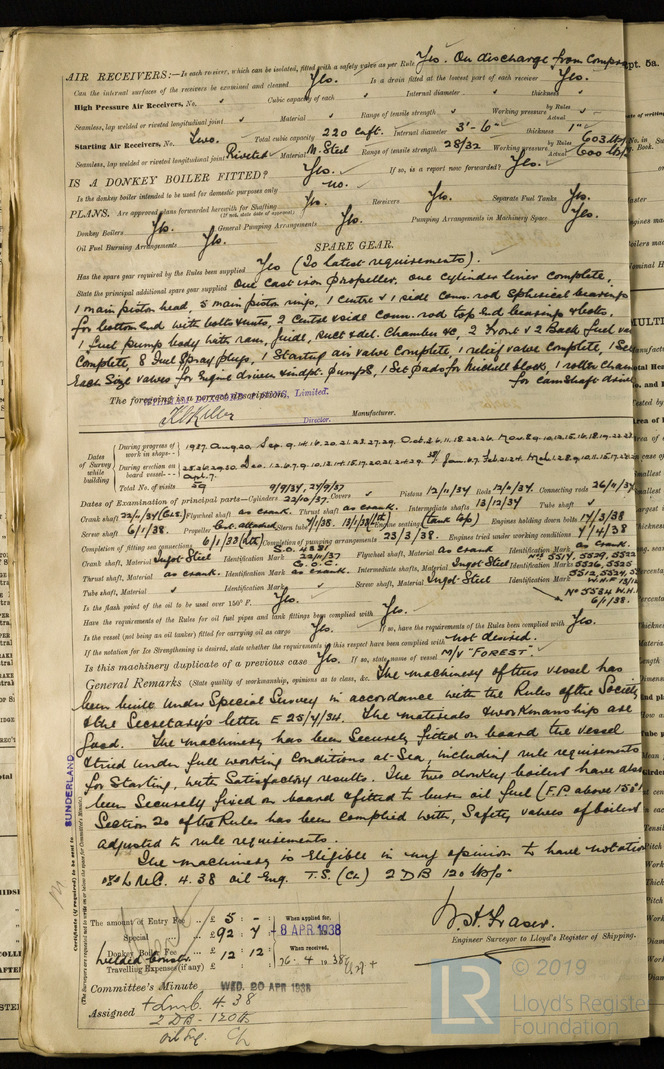 AIR RECEIVERS:—Is each receiver, which can be isolated, fitted with a safety valve as per Rule Yes. On discharge from Compr
Can the internal surfaces of the receivers be examined and cleaned Yes. Is a drain fitted at the lowest part of each receiver Yes.
High Pressure Air Receivers, No. Cubic capacity of each Internal diameter thickness
Seamless, lap welded or riveted longitudinal joint Material Range of tensile strength Working pressure by Rules Actual
Starting Air Receivers, No. Two. Total cubic capacity 220 cuft. Internal diameter 3'-6" thickness 1"
Seamless, lap welded or riveted longitudinal joint Riveted Material M. Steel Range of tensile strength 28/32 Working pressure by Rules 603 lbs Actual 600 lbs
IS A DONKEY BOILER FITTED? Yes. If so, is a report now forwarded? Yes.
Is the donkey boiler intended to be used for domestic purposes only no.
PLANS. Are approved plans forwarded herewith for Shafting Yes. Receivers Yes. Separate Fuel Tanks Yes.
(If not, state date of approval)
Donkey Boilers Yes. General Pumping Arrangements Yes. Pumping Arrangements in Machinery Space Yes.
Oil Fuel Burning Arrangements Yes.
SPARE GEAR.
Has the spare gear required by the Rules been supplied Yes (To latest requirements).
State the principal additional spare gear supplied One cast iron propeller, one cylinder liner complete,
1 main piston head, 5 main piston rings, 1 centre & 1 side conn. rod spherical bearings
for bottom end with bolts & nuts, 2 centre & side conn. rod top end bearings & bolts,
1 fuel pump body with ram, guide, suct & del. chamber &c, 2 Front & 2 Back fuel va
complete, 8 fuel spray plugs, 1 starting air valve complete, 1 relief valve complete, 1 Set
each size valves for engine driven & indpt. pumps, 1 Set pads for michell block, 1 roller chain
for camshaft drive
The foregoing is a correct description, Limited.
Director. Manufacturer.
Dates of Survey while building
During progress of work in shops-- 1937. Aug. 20. Sep. 9.14.16.20.21.23.27.29. Oct. 2.6.11.18.22.26. Nov. 8.9.10.12.15.16.18.19.22.23
During erection on board vessel--- 25.26.29.30. Dec. 1.2.6.7.9.10.13.14.15.17.20.21.24.29.
Total No. of visits 59
Dates of Examination of principal parts—Cylinders 22/10/37. Covers Pistons 12/11/37 Rods 12/11/37. Connecting rods 26/11/37
Crank shaft 22/11/37 (Gls.) Flywheel shaft as crank. Thrust shaft as crank. Intermediate shafts 13/12/37 Tube shaft
Screw shaft 6/1/38. Propeller Stern tube 7/1/38. Engine seating (tank top) Engines holding down bolts 14/3/38
Completion of fitting sea connections Completion of pumping arrangements 23/3/38. Engines tried under working conditions 4/4/38
Crank shaft, Material Ingot Steel Identification Mark S.O. 4881 22/11/37 G.O.C. Flywheel shaft, Material as crank Identification Mark as crank.
Thrust shaft, Material as crank. Identification Mark as crank Intermediate shafts, Material Ingot Steel Identification Marks
Tube shaft, Material Identification Mark Screw shaft, Material Ingot Steel Identification Mark
No 5534 W.H.
6/1/38.
Is the flash point of the oil to be used over 150° F. Yes.
Have the requirements of the Rules for oil fuel pipes and tank fittings been complied with Yes.
Is the vessel (not being an oil tanker) fitted for carrying oil as cargo Yes. If so, have the requirements of the Rules been complied with Yes.
If the notation for Ice Strengthening is desired, state whether the requirements in this respect have been complied with not desired.
Is this machinery duplicate of a previous case Yes. If so, state name of vessel M/V "FOREST"
General Remarks (State quality of workmanship, opinions as to class, &c. The machinery of this vessel has
been built under Special Survey in accordance with the Rules of the Society
& the Secretary's letter E 25/7/34. The materials & workmanship are
good. The machinery has been securely fitted on board the vessel
& tried under full working conditions at sea, including rule requirements
for starting, with satisfactory results. The two donkey boilers have also
been securely fixed on board & fitted to burn oil fuel (F.P. above 150°
Section 20 of the Rules has been complied with, Safety valves of boilers
adjusted to rule requirements.
The machinery is eligible in my opinion to have notation
4.38 oil Eng. T.S. (CL) 2 DB 120 lbs"
SUNDERLAND
Certificate (if required) to be sent to
(The Surveyors are requested not to write on or below the space for Committee's Minute.)
The amount of Entry Fee .. £ 5 : - : When applied for,
Special .. £ 92 : 7 : - 8 APR. 1938
Donkey Boiler Fee .. £ 12 : 12 : When received,
Travelling Expenses (if any) £ : :
W.H. Fraser.
Engineer Surveyor to Lloyd's Register of Shipping.
Committee's Minute WED. 20 APR 1938
Assigned + Lmb. 4.38
2 DB - 120 lb
oil Eng. CL
LR
© 2019
Lloyd's Register
Foundation